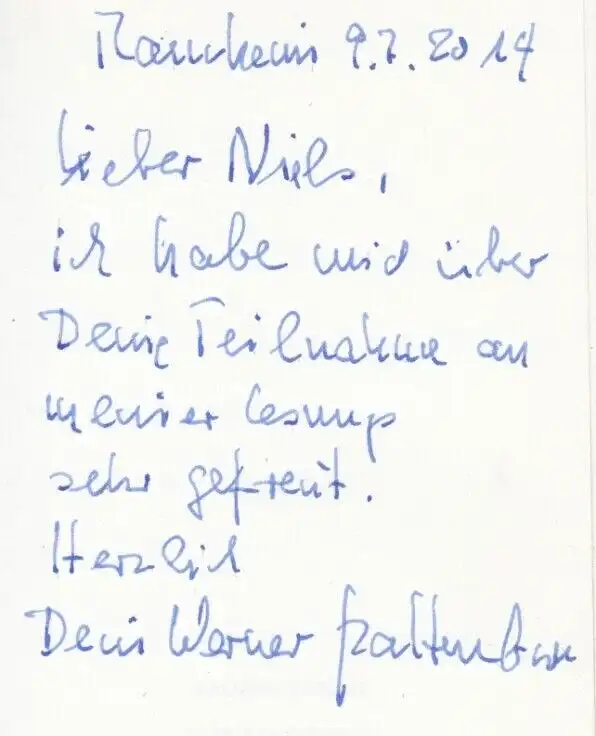 9.7.2014
Lieber Niels,
ich habe mich über
Deine Teilnahme an
meiner Lesung
sehr gefreut.
Herzlich
Dein Werner